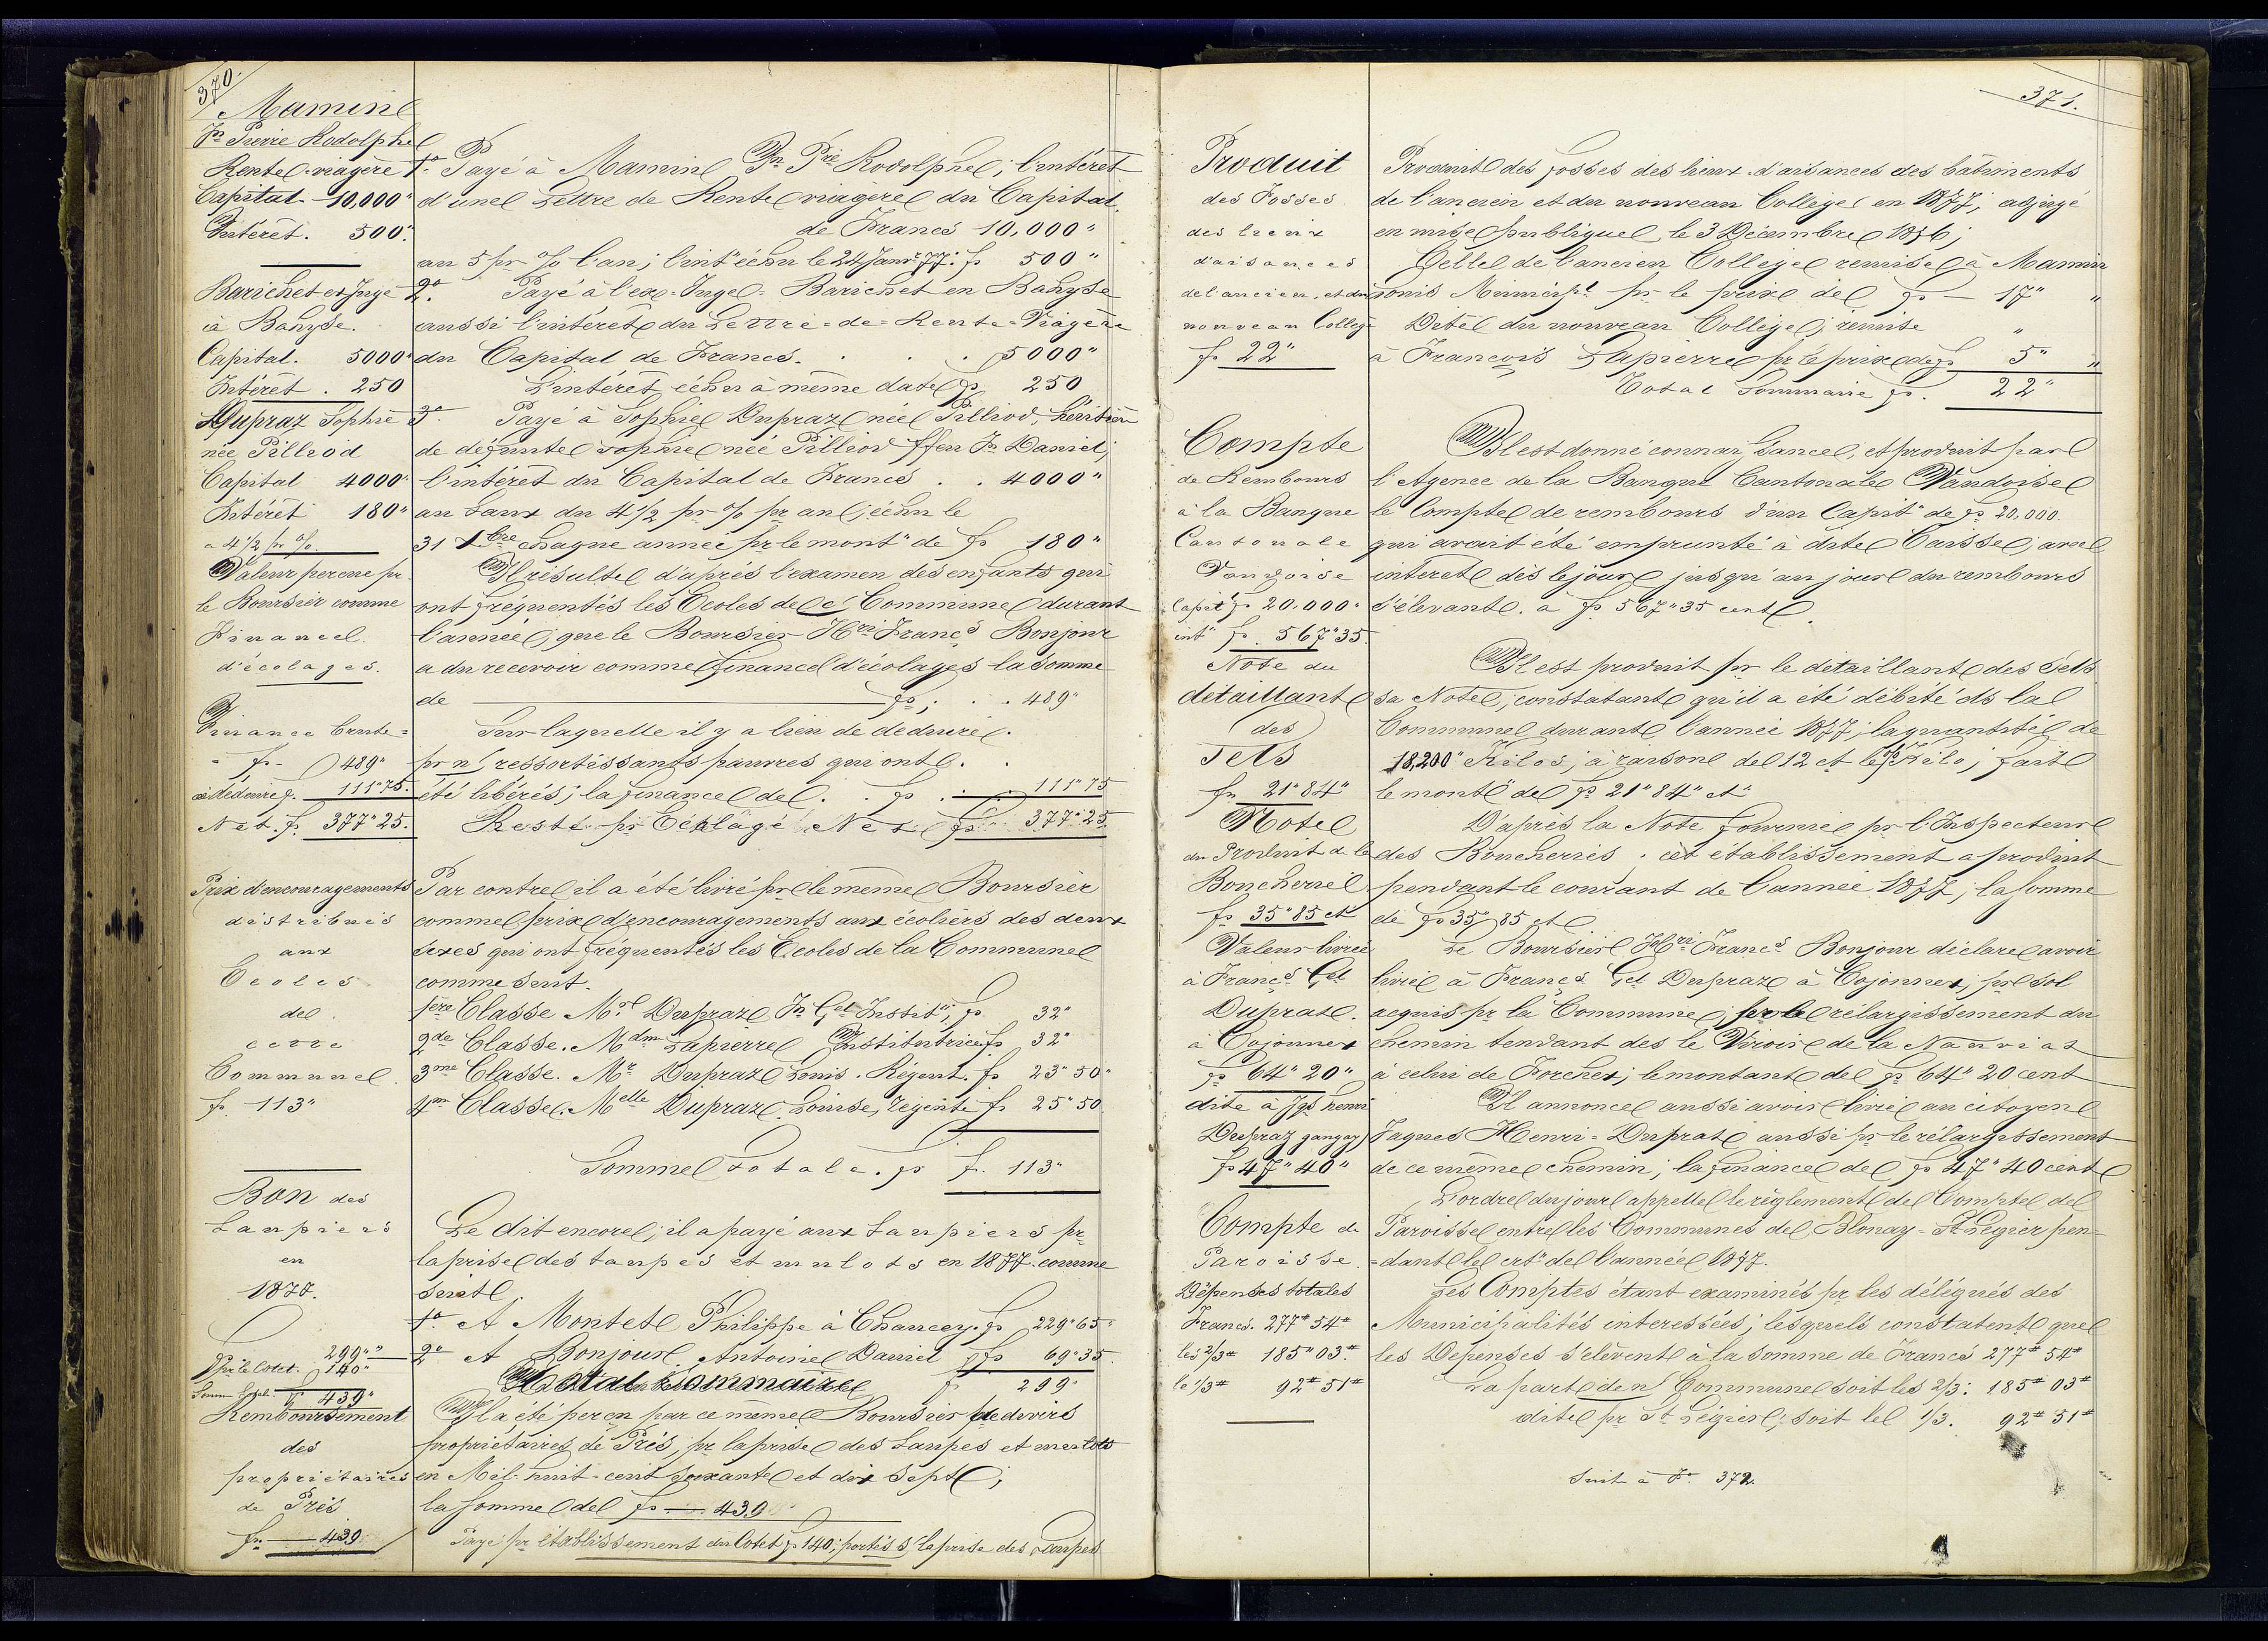 370.
Mamin
Jn Pierre Rodolphe
Rente viagère
Capital. 10,000"
Intérêt. 500".
Barichet ex Juge
à Bahyse.
Capital. 5000"
Intérêt. 250
Dupraz Sophie
née Pilliod
Capital 4000"
Intérêt 180"
a 4 1/2 pr %
Valeur percue pr
le Boursier comme
Finance
d'écolages.
Finance brute =
" fr - 489"
à déduire f. 111"75.
Net. fr. 377"25.
Prix d'encouragements
distribués
aux
Ecoles
de
cette
Commune.
fr. 113"
Bon des
Taupiers
en
1877.
299" "
Pr le Cotet. 140"
Somme total. fr 439"
Remboursement
des
propriétaires
de Prés
fr. — 439
1o Payé à Mamin Jn Pre Rodolphe, l'intérêt
d'une Lettre de Rente viagère du Capital.
de Francs 10,000"
au 5 pr % l'an; l'intt échu le 24 Janvr 77: fr 500"
2o Payé à l'ex-Juge = Barichet en Bahyse
aussi l'intérêt du Lettre = de = Rente = Viagère
du Capital de Francs. . . . 5000"
L'intérêt échu à même date fr 250
3o Payé à Sophie Dupraz née Pilliod, héritière
de défunte Sophie née Pilliod ffeu Jn Daniel,
l'intérêt du Capital de Francs . . 4000"
au taux du 4 1/2 pr % pr an, échu le
31 Xbre chaque année pr le montt de fr 180"
Il résulte d'après l'examen des enfants qui
ont fréquentés les Ecoles de c/ Commune durant
l'année, que le Boursier Hri Francs Bonjour
a du recevoir comme finance d'écolages la somme
de — fr; . . 489"
Sur laquelle il y a lieu de deduire.
pr n/ ressortissants pauvres qui ont . .
été libérés; la finance de . . fr . . . 111"75
Reste pr Ecolage Net fr 377"25
Par contre il a été livré pr le même Boursier
comme prix d'encouragements aux écoliers des deux
sexes qui ont fréquentés les Ecoles de la Commune
comme suit.
1ère Classe Mr Dupraz Jn Gel Instit"; fr 32"
2de Classe. Mdm Lapierre Institutrice fr 32"
3me Classe. Mr Dupraz Louis. Régent. fr 23"50"
4m Classe. Melle Dupraz Louise, régente fr 25"50
Somme totale. fr f. 113"
Le dit encore; il a payé aux Taupiers pr
la prise des taupes et mulots en 1877 comme
suit.
1o A Montet Philippe à Chancey. fr 229"65"
2o A Bonjour Antoine Daniel fr 69"35.
Total Sommaire fr 299"
Il a été percu par ce même Boursier de divers
propriétaires de Prés, pr la prise des taupes et mulots
en Mil-huit-cent soixante et dix sept;
la somme de fr — 439
Payé pr établissement du Cotet fr 140; portés s/ la prise des Taupes
371.
Produit
des Fosses
des lieux
d'aisances
de l'ancien, et du
nouveau College
fr 22"
Compte
de Rembours
à la Banque
Cantonale
Vaudoise
Capitl fr 20.000"
intt fr. 567"35.
Note du
détaillant
des
Sels
fr 21"84"
Note
du Produit de la
Boucherie
fr 35"85 ct
Valeur livrée
à Francs Gel
Dupraz.
à Cojonnex
fr 64"20"
dite à Jqs henri
Dupraz gangaz
fr 47"40"
Compte de
Paroisse.
Dépenses totales
Francs. 277" 54"
les 2/3" 185" 03"
le 1/3" 92" 51"
Produit des fosses des lieux d'aisances des bâtiments
de l'ancien et du nouveau College en 1877, adjugé
en mise publique le 3 Décembre 1876;
Celle de l'ancien College remise à Mamin
Louis Municipl pr le prix de fr — 17" "
Dite du nouveau College, remise "
à Francois Lapierre pr le prix de fr 5" "
Total Sommaire fr. 22"
Il est donné connaissance, et produit par
l'Agence de la Banque Cantonale Vaudoise
le Compte de rembours d'un Capitl de fr 20,000.
qui avait été emprunté à dite Caisse, avec
interet dès le jour jusqu'au jour du rembours
s'élevant. à fr 567"35 cent.
Il est produit pr le détaillant des Sels
sa Note, constatant qu'il a été débité ds la
Commune durant l'année 1877, la quantité de
18,200" Kilos, à raison de 12 ct le % Kilo, fait
le montt de fr 21"84" ct"
D'après la Note fournie pr l'Inspecteur
des Boucheries. cet établissement a produit
pendant le courant de l'année 1877, la somme
de fr 35"85 ct
Le Boursier Hri Francs Bonjour déclare avoir
livré à Francs Gel Dupraz à Cojonnex, pr sol
acquis pr la Commune, pr le rélargissement du
chemin tendant des le Viroir de la Nauriaz
à celui de Forchex; le montant de fr 64"20 cent
Il annonce aussi avoir livré au citoyen
Jaques Henri = Dupraz aussi pr le rélargissement
de ce même chemin; la finance de fr 47"40 cent
L'ordre du jour appelle le réglement de Compte de
Paroisse entre les Communes de Blonay = St Légier pen=
=dant le crt de l'année 1877.
Les Comptes étant examinés pr les délégués des
Municipalités interessées; lesquels constatent que
les Dépenses s'élèvent à la somme de Francs 277" 54"
La part de n/ Commune soit les 2/3: 185" 03"
dite pr St Légier, soit le 1/3. 92" 51"
Suit à Fo 372.